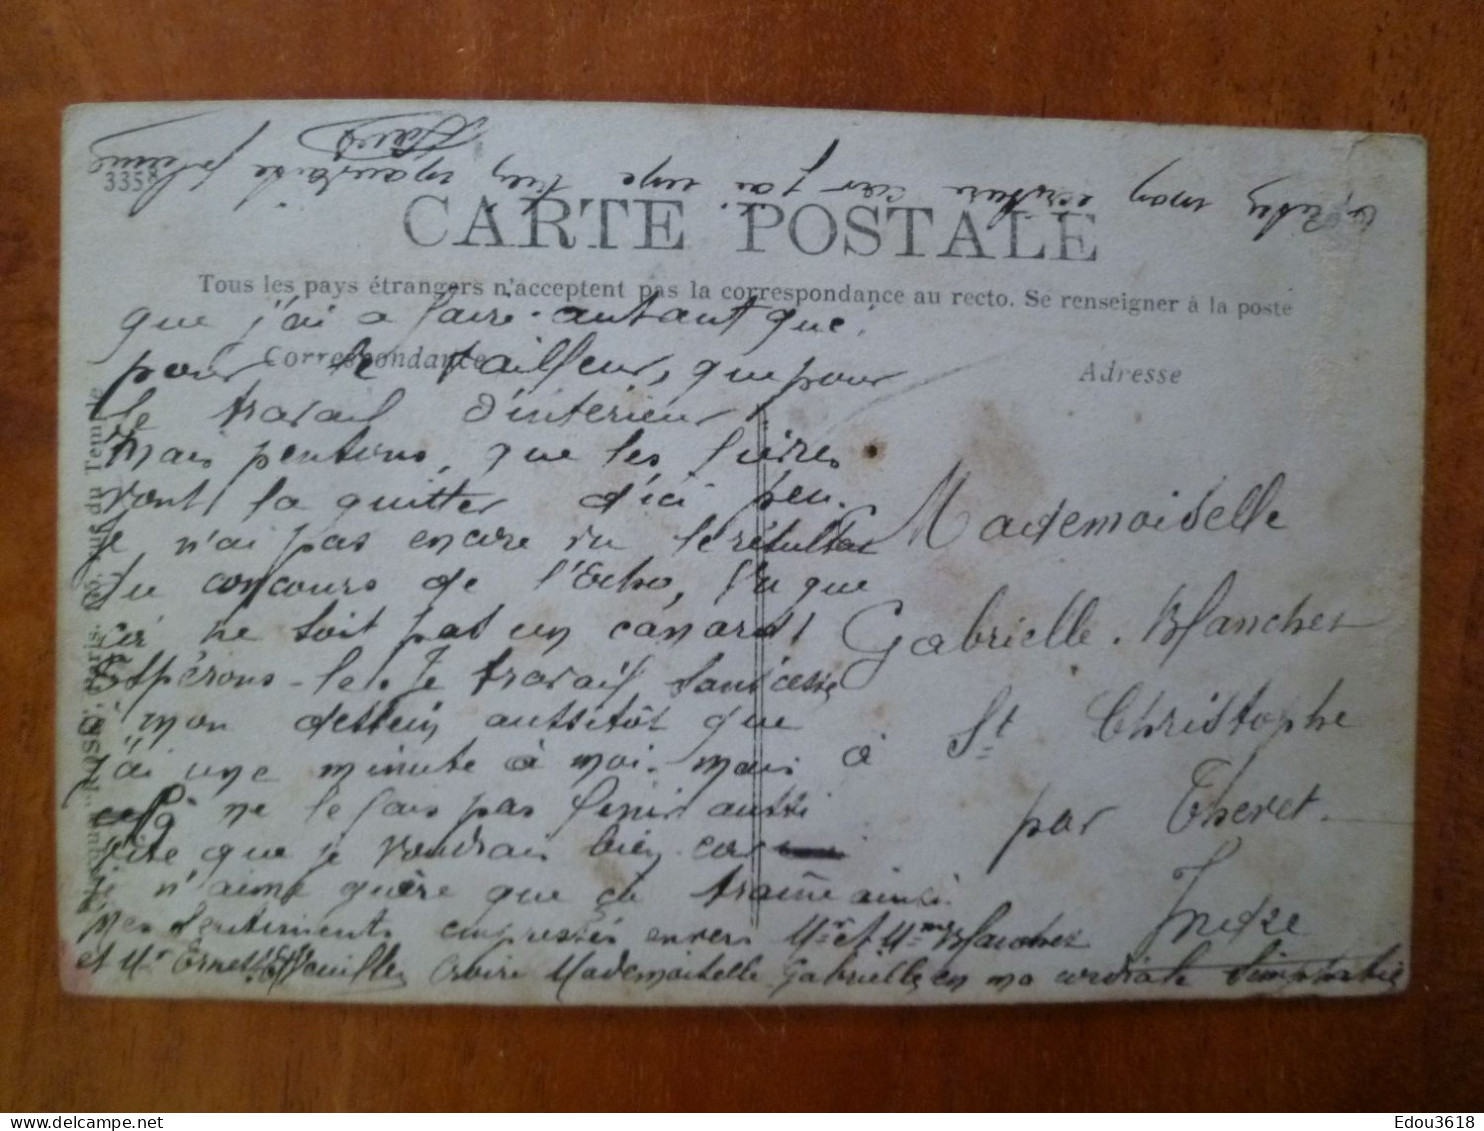 3358
CARTE POSTALE
Tous les pays étrangers n'acceptent pas la correspondance au recto. Se renseigner à la poste
Correspondance
Adresse
que j'ai a faire. autant que
pour le tailleur, que pour
le travail d'intérieur.
Mais pentons, que les fièvres
vont la quitter d'ici peu.
Je n'ai pas encore vu le résultat
du concours de l'Echo, que
ne soit pas un canard!
Espérons-le. Je travail sans cesse
à mon dessein aussitôt que
j'ai une minute à moi. mais
celà ne le fais pas finir aussi
vite que je voudrais bien. car
n'aime guère que ça traine ainsi.
Mes sentiments empressés envers Mr et Mme Blanchet
et Mr Ernest Veuillez croire Mademoiselle Gabrielle, en ma cordiale Simpathie
mon écriture car j'ai une très mauvaise plume
Mademoiselle
Gabrielle. Blanchet
à St Christophe
par Cheret.
Indre
rue du Temple
Edou3618